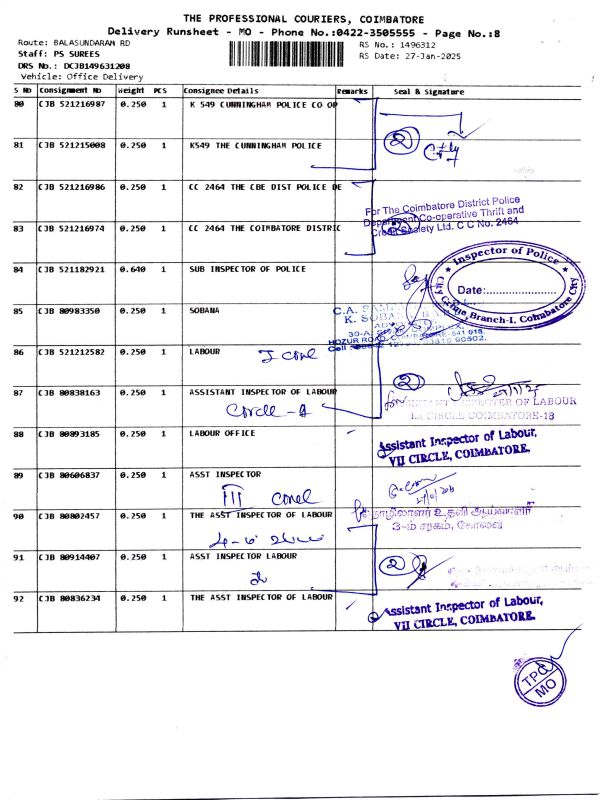 THE PROFESSIONAL COURIERS, COIMBATORE
Delivery Runsheet - MO - Phone No.:0422-3505555 - Page No.:8
Route: BALASUNDARAM RD
RS No.: 1496312
Staff: PS SUREES
RS Date: 27-Jan-2025
DRS No.: DCJB149631208
Vehicle: Office Delivery
S No Consignment No Weight PCS Consignee Details Remarks Seal & Signature
80 CJB 521216987 0.250 1 K 549 CUNNINGHAM POLICE CO OP
81 CJB 521215008 0.250 1 K549 THE CUNNINGHAM POLICE
2
82 CJB 521216986 0.250 1 CC 2464 THE CBE DIST POLICE DE
For The Coimbatore District Police
Department Co-operative Thrift and
Credit Society Ltd. C C No. 2464
83 CJB 521216974 0.250 1 CC 2464 THE COIMBATORE DISTRIC
84 CJB 521182921 0.640 1 SUB INSPECTOR OF POLICE
Inspector of Police
Date:
City Crime Branch-I, Coimbatore City
85 CJB 80983350 0.250 1 SOBANA
HOZUR ROAD, COIMBATORE. 641 018.
86 CJB 521212582 0.250 1 LABOUR
87 CJB 80838163 0.250 1 ASSISTANT INSPECTOR OF LABOUR
2
ASSISTANT INSPECTOR OF LABOUR
Ist CIRCLE COIMBATORE-18
88 CJB 80893185 0.250 1 LABOUR OFFICE
Assistant Inspector of Labour,
VII CIRCLE, COIMBATORE.
89 CJB 80606837 0.250 1 ASST INSPECTOR
III
90 CJB 80802457 0.250 1 THE ASST INSPECTOR OF LABOUR
தொழிலாளர் உதவி ஆய்வாளர்
3-ம் சரகம், கோவை
91 CJB 80914407 0.250 1 ASST INSPECTOR LABOUR
2
2
92 CJB 80836234 0.250 1 THE ASST INSPECTOR OF LABOUR
Assistant Inspector of Labour,
VII CIRCLE, COIMBATORE.
TPC
MO